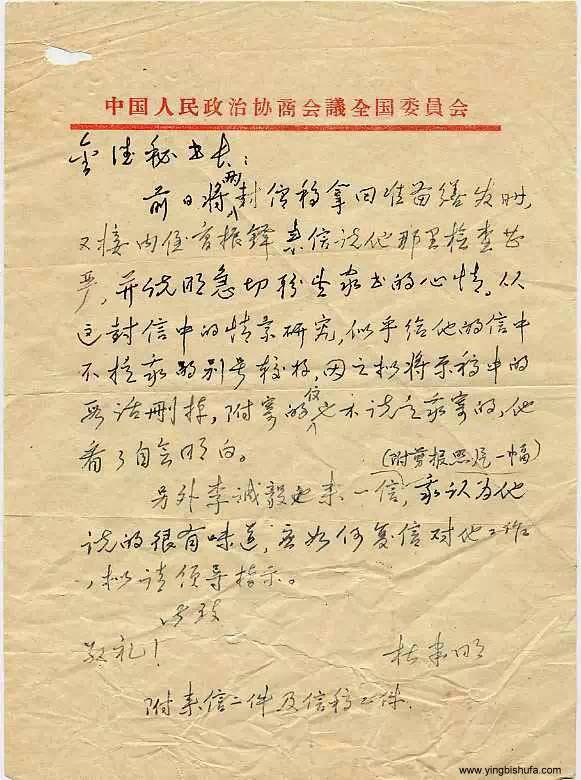 中国人民政治协商会議全国委員会
金德秘书长：
前日将两封信稿拿回准备缮发时，
又接内侄曹振铎来信说他那里检查甚
严，并说明急切盼望家书的心情。从
这封信中的情景研究，似乎给他的信中
不提我的别号较好，因之拟将原稿中的
那话删掉，附寄的也不说是我寄的，他
看了自会明白。
（附剪报照片一幅）
另外李诚毅也来一信，我认为他
说的很有味道，应如何复信对他工作
，拟请领导指示。
此致
敬礼！ 杜聿明
附来信二件及信稿二件。
www.yingbishufa.com